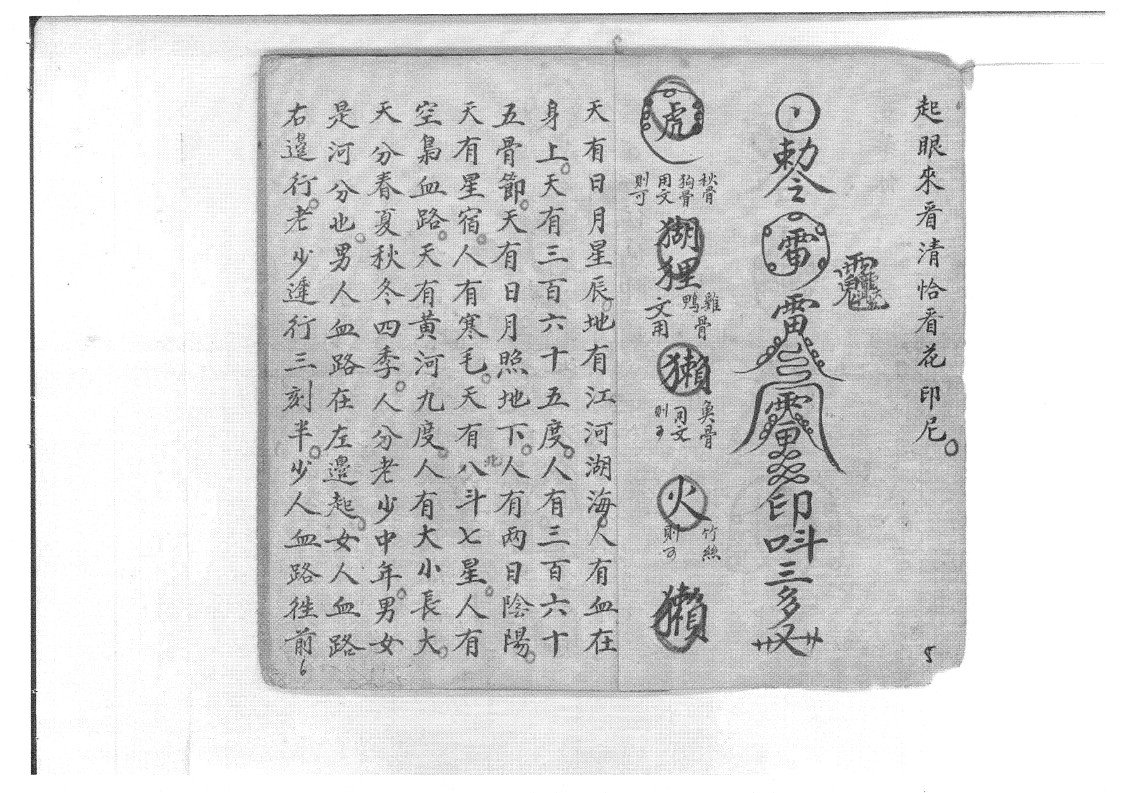 起眼來看清恰看花印尼。
5
勅令
雷
雷
印
三多
虎
秋骨
狗骨
用文
則可
猢狸
雞骨
鴨
文用
獺
魚骨
用文
則可
火
竹絲
則可
獺
天有日月星辰。地有江河湖海。人有血在
身上。天有三百六十五度。人有三百六十
五骨節。天有日月照地下。人有兩日陰陽。
天有星宿。人有寒毛。天有北八斗七星。人有
空梟血路。天有黃河九度。人有大小長大。
天分春夏秋冬四季。人分老少中年。男女
是河分也。男人血路在左邊起。女人血路
右邊行。老少逢行三刻半。少人血路徃前
6